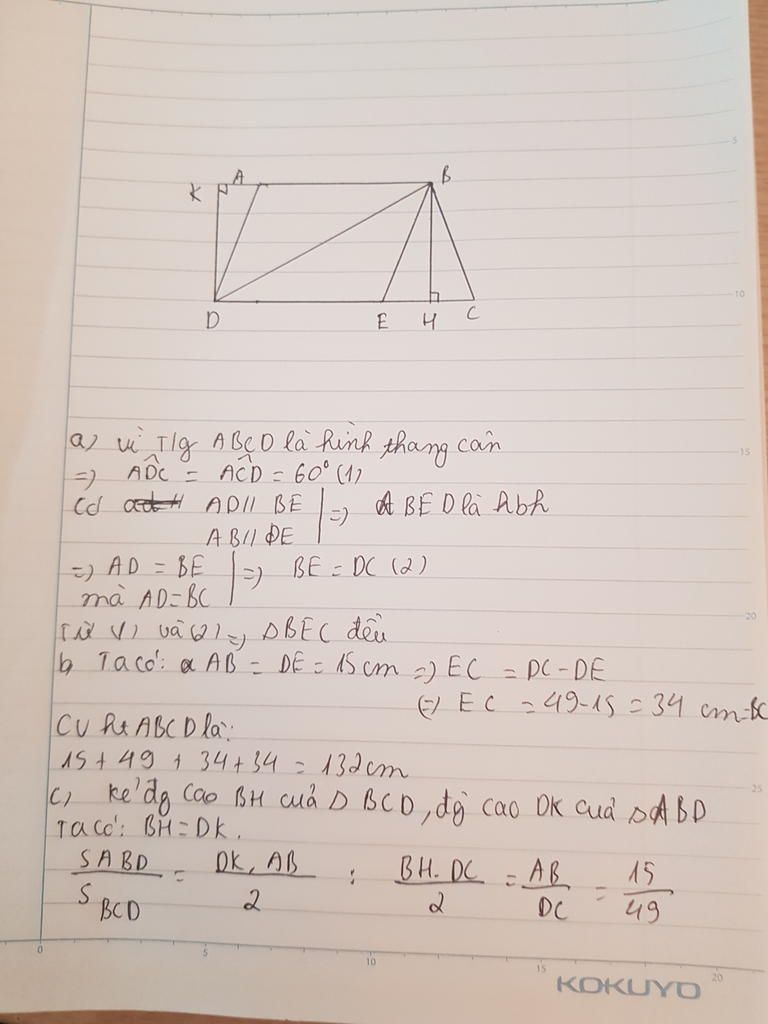 K A B
D E H C
a) vì T/g ABCD là hình thang cân
=) ADC = ACD = 60° (1)
Có AD // BE | =) ABED là hbh
AB // DE
=) AD = BE | =) BE = DC (2)
mà AD = BC
Từ (1) và (2) =) ΔBEC đều
b Ta có: AB = DE = 15cm =) EC = DC - DE
(=) EC = 49-15 = 34 cm = BC
CV ht ABCD là:
15 + 49 + 34 + 34 = 132cm
c) kẻ đg cao BH cuả Δ BCD, đg cao DK cuả Δ ABD
Ta có: BH = DK.
SABD / SBCD = DK. AB / 2 : BH. DC / 2 = AB / DC = 15 / 49
5
10
15
20
25
0 5 10 15 20
KOKUYO